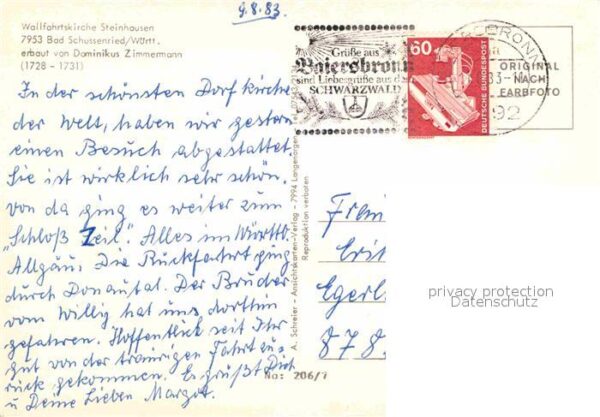 9.8.83
Wallfahrtskirche Steinhausen
7953 Bad Schussenried/Württ.
erbaut von Dominikus Zimmermann
(1728 - 1731)
In der schönsten Dorfkirche
der Welt, haben wir gestern
einen Besuch abgestattet.
Sie ist wirklich sehr schön.
Von da ging es weiter zum
"Schloß Zeil". Alles im Württ.
Allgäu. Die Rückfahrt ging
durch Donautal. Der Bruder
vom Willig hat uns dorthin
gefahren. Hoffentlich seit Ihr
gut von der traurigen Fahrt zu-
rück gekommen. Es grüßt Dich
u Deine Lieben Margot.
Grüße aus
Baiersbronn
sind Liebesgrüße aus dem
SCHWARZWALD
60
DEUTSCHE BUNDESPOST
ORIGINAL
NACH
FARBFOTO
A. Schreier - Ansichtskarten-Verlag - 7994 Langenargen
Reproduktion verboten
Egerl
878
No: 206/7
privacy protection
Datenschutz